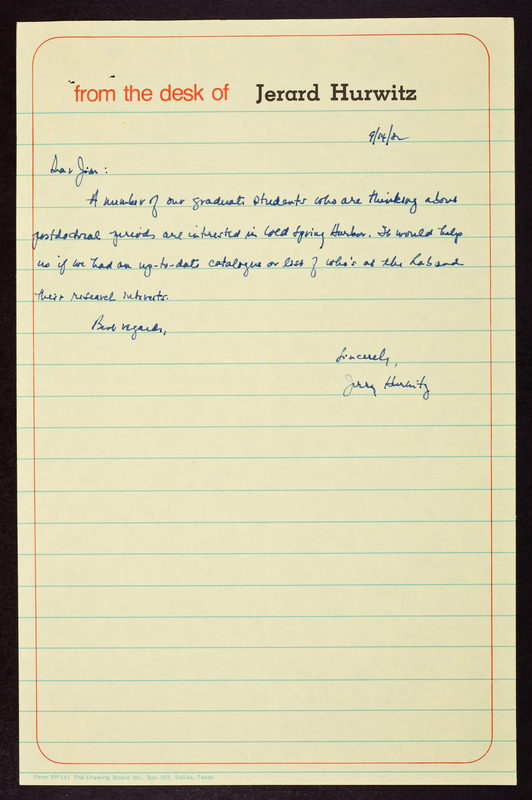 from the desk of Jerard Hurwitz
9/14/82
Dear Jim:
A number of our graduate students who are thinking about
postdoctoral periods are interested in Cold Spring Harbor. It would help
us if we had an up-to-date catalogue or list of who's at the Lab and
their research interests.
Best regards,
Sincerely,
Jerry Hurwitz
Form PP-141 The Drawing Board Inc., Box 505, Dallas, Texas